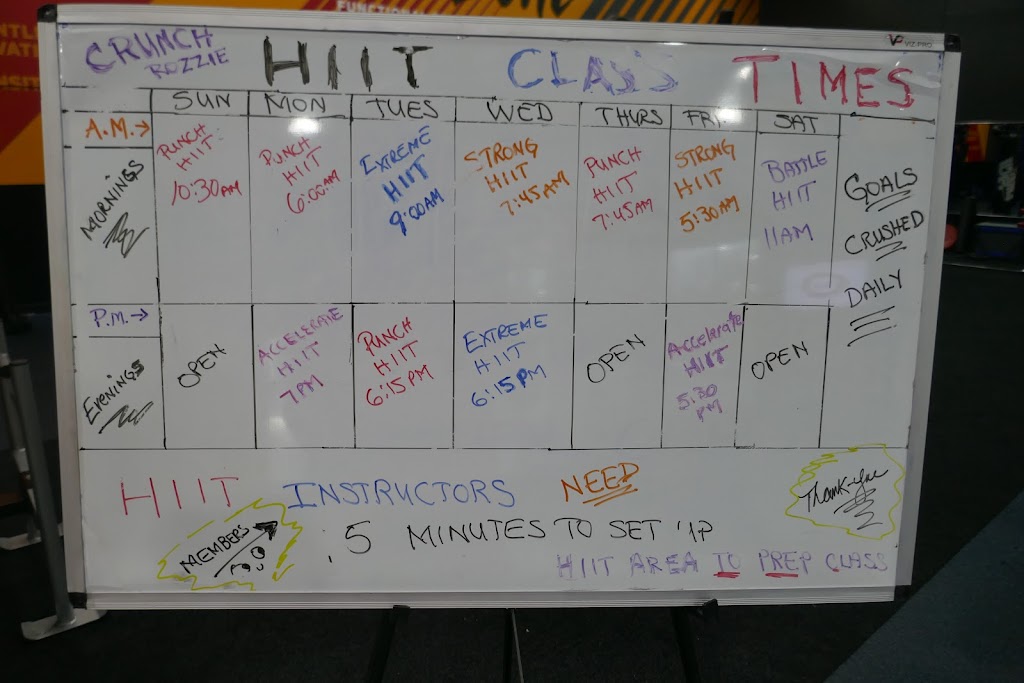 FUNCTIONAL
VIZ-PRO
CRUNCH
ROZZIE
HIIT CLASS TIMES
SUN MON TUES WED THURS FRI. SAT
A.M.→
MORNINGS
PUNCH
HIIT:
10:30AM
PUNCH
HIIT
6:00AM
EXTREME
HIIT
9:00AM
STRONG
HIIT
7:45AM
PUNCH
HIIT
7:45AM
STRONG
HIIT
5:30AM
BATTLE
HIIT
11AM
GOALS
CRUSHED
DAILY
P.M.→
EVENINGS
OPEN
ACCELERATE
HIIT
7PM
PUNCH
HIIT
6:15PM
EXTREME
HIIT
6:15PM
OPEN
Accelerate
HIIT
5:30
PM
OPEN
HIIT INSTRUCTORS NEED
MEMBERS
5 MINUTES TO SET UP
HIIT AREA TO PREP CLASS
Thank-you